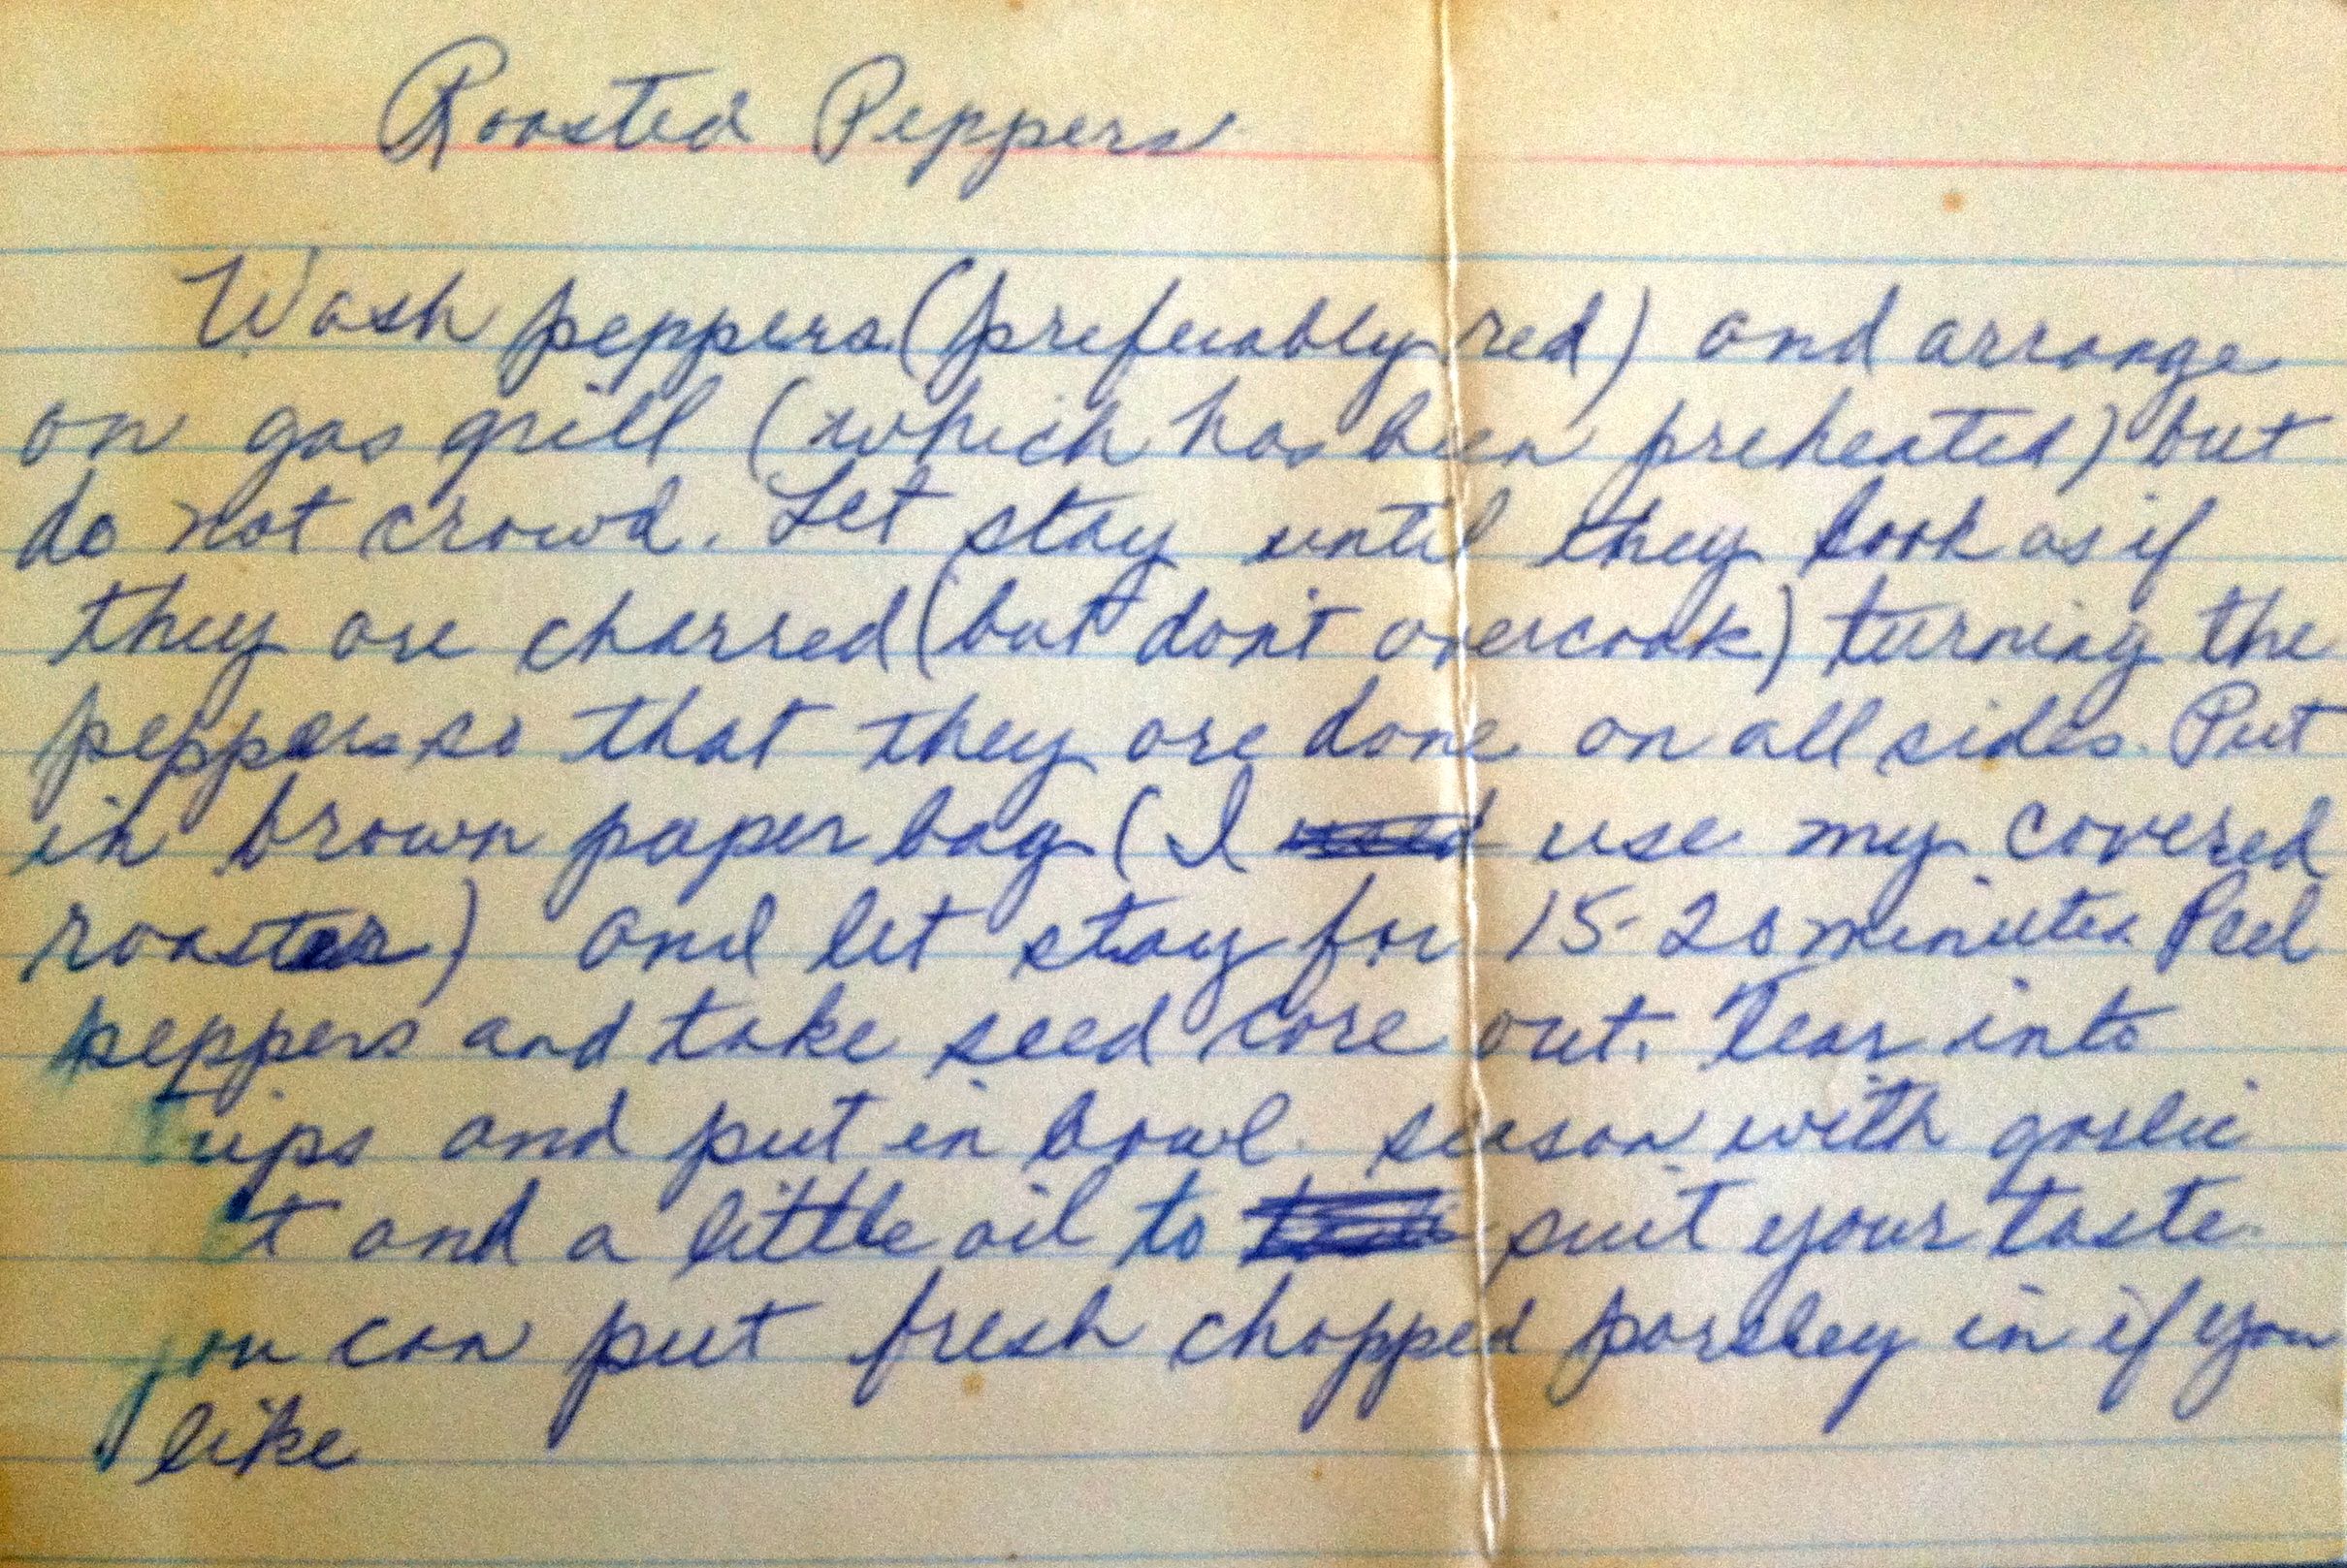 Roasted Peppers
Wash peppers (preferably red) and arrange
on gas grill (which has been preheated) but
do not crowd. Let stay until they look as if
they are charred (but don't overcook) turning the
peppers so that they are done on all sides. Put
in brown paper bag (I use my covered
roaster) and let stay for 15-20 minutes. Peel
peppers and take seed core out. Tear into
rips and put in bowl. season with garlic
t and a little oil to suit your taste
you can put fresh chopped parsley in if you
like